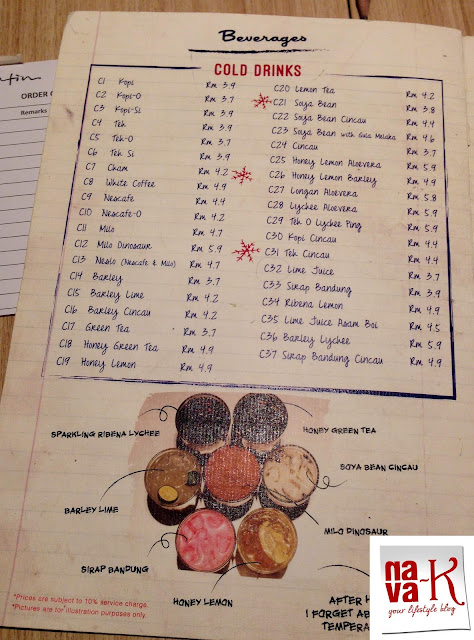 fin
ORDER C
Remarks
Beverages
COLD DRINKS
C1 Kopi Rm 3.9
C2 Kopi-O Rm 3.7
C3 Kopi-Si Rm 3.9
C4 Teh Rm 3.9
C5 Teh-O Rm 3.7
C6 Teh Si Rm 3.9
C7 Cham Rm 4.2
C8 White Coffee Rm 4.9
C9 Nescafe Rm 4.4
C10 Nescafe-O Rm 4.2
C11 Milo Rm 4.7
C12 Milo Dinosaur Rm 5.9
C13 Neslo (Nescafe & Milo) Rm 4.7
C14 Barley Rm 3.7
C15 Barley Lime Rm 4.2
C16 Barley Cincau Rm 4.2
C17 Green Tea Rm 3.7
C18 Honey Green Tea Rm 4.9
C19 Honey Lemon Rm 4.9
C20 Lemon Tea Rm 4.2
C21 Soya Bean Rm 3.8
C22 Soya Bean Cincau Rm 4.4
C23 Soya Bean with Gula Melaka Rm 4.6
C24 Cincau Rm 3.7
C25 Honey Lemon Aloevera Rm 5.9
C26 Honey Lemon Barley Rm 4.9
C27 Longan Aloevera Rm 5.8
C28 Lychee Aloevera Rm 5.9
C29 Teh O Lychee Ping Rm 5.9
C30 Kopi Cincau Rm 4.4
C31 Teh Cincau Rm 4.4
C32 Lime Juice Rm 3.7
C33 Sirap Bandung Rm 3.9
C34 Ribena Lemon Rm 4.9
C35 Lime Juice Asam Boi Rm 4.5
C36 Barley Lychee Rm 5.9
C37 Sirap Bandung Cincau Rm 4.9
SPARKLING RIBENA LYCHEE
HONEY GREEN TEA
SOYA BEAN CINCAU
BARLEY LIME
MILO DINOSAUR
SIRAP BANDUNG
HONEY LEMON
*Prices are subject to 10% service charge.
*Pictures are for illustration purposes only.
AFTER H
I FORGET AB
TEMPERA
na
va-K
your lifestyle blog